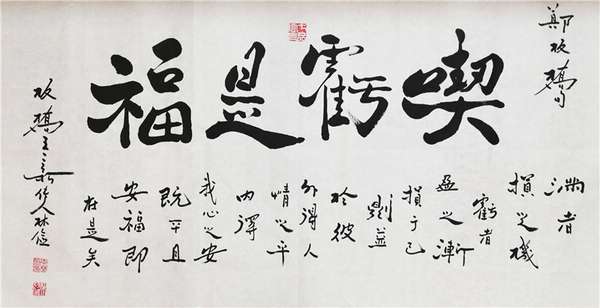 鄭板橋句
喫虧是福
滿者
損之機
虧者
盈之漸
損于己
則益
於彼
外得人
情之平
內得
我心之安
既平且
安福即
在是矣
板橋
人林